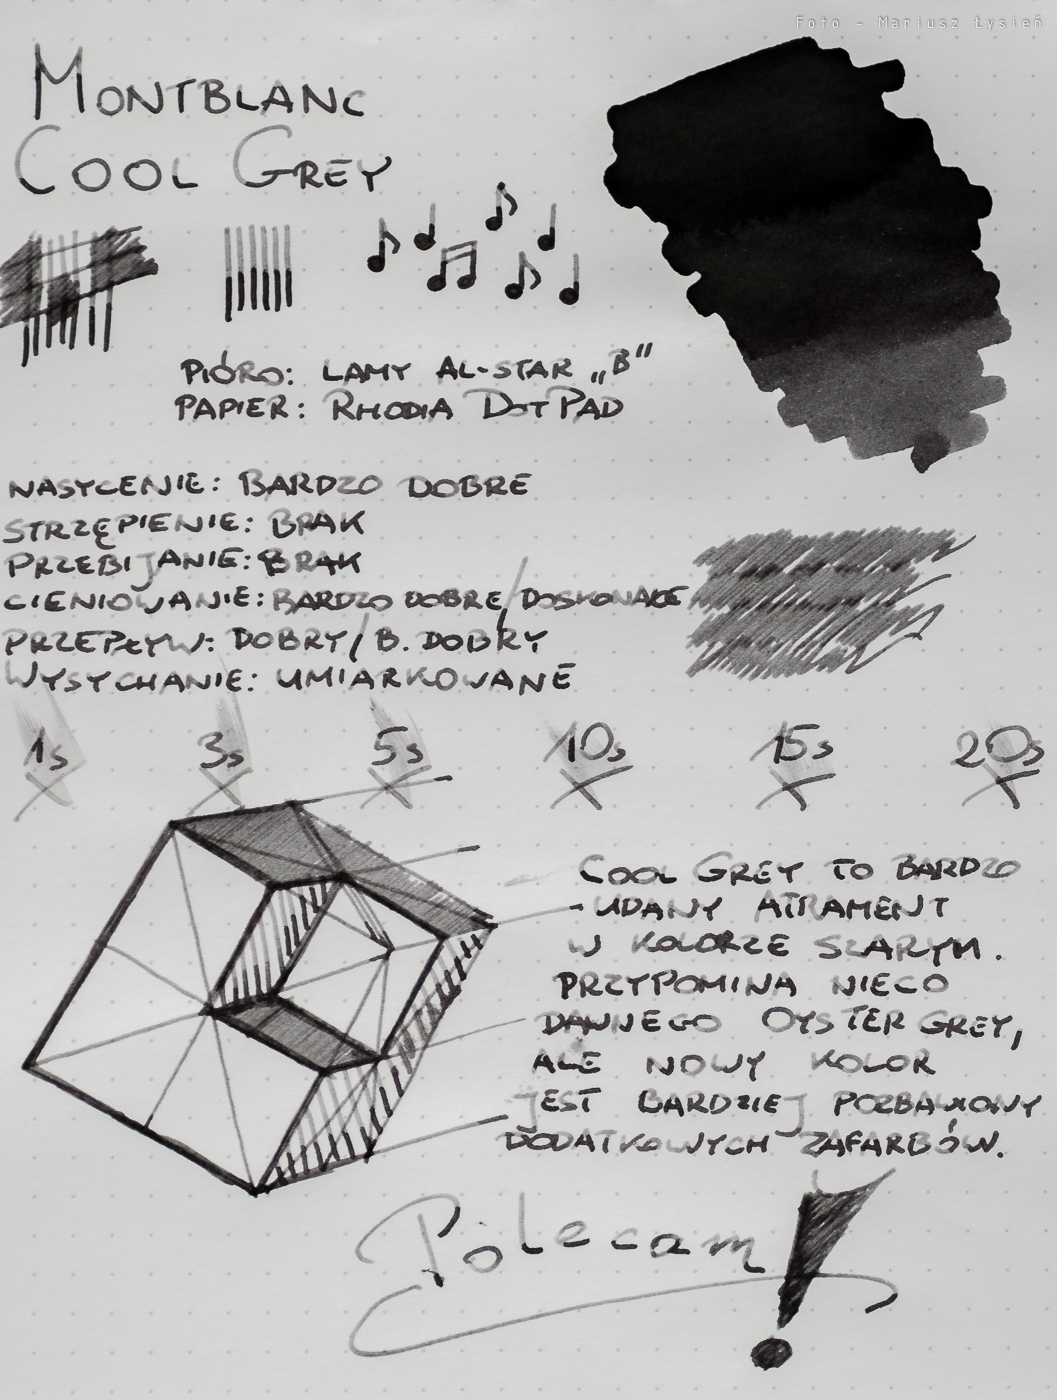 Foto - Mariusz Łysień
MONTBLANC
COOL GREY
PIÓRO: LAMY AL-STAR „B”
PAPIER: RHODIA DOTPAD
NASYCENIE: BARDZO DOBRE
STRZĘPIENIE: BRAK
PRZEBIJANIE: BRAK
CIENIOWANIE: BARDZO DOBRE/DOSKONAŁE
PRZEPŁYW: DOBRY/B. DOBRY
WYSYCHANIE: UMIARKOWANE
1s 3s 5s 10s 15s 20s
COOL GREY TO BARDZO
UDANY ATRAMENT
W KOLORZE SZARYM.
PRZYPOMINA NIECO
DAWNEGO OYSTER GREY,
ALE NOWY KOLOR
JEST BARDZIEJ POZBAWIONY
DODATKOWYCH ZAFARBÓW.
Polecam!